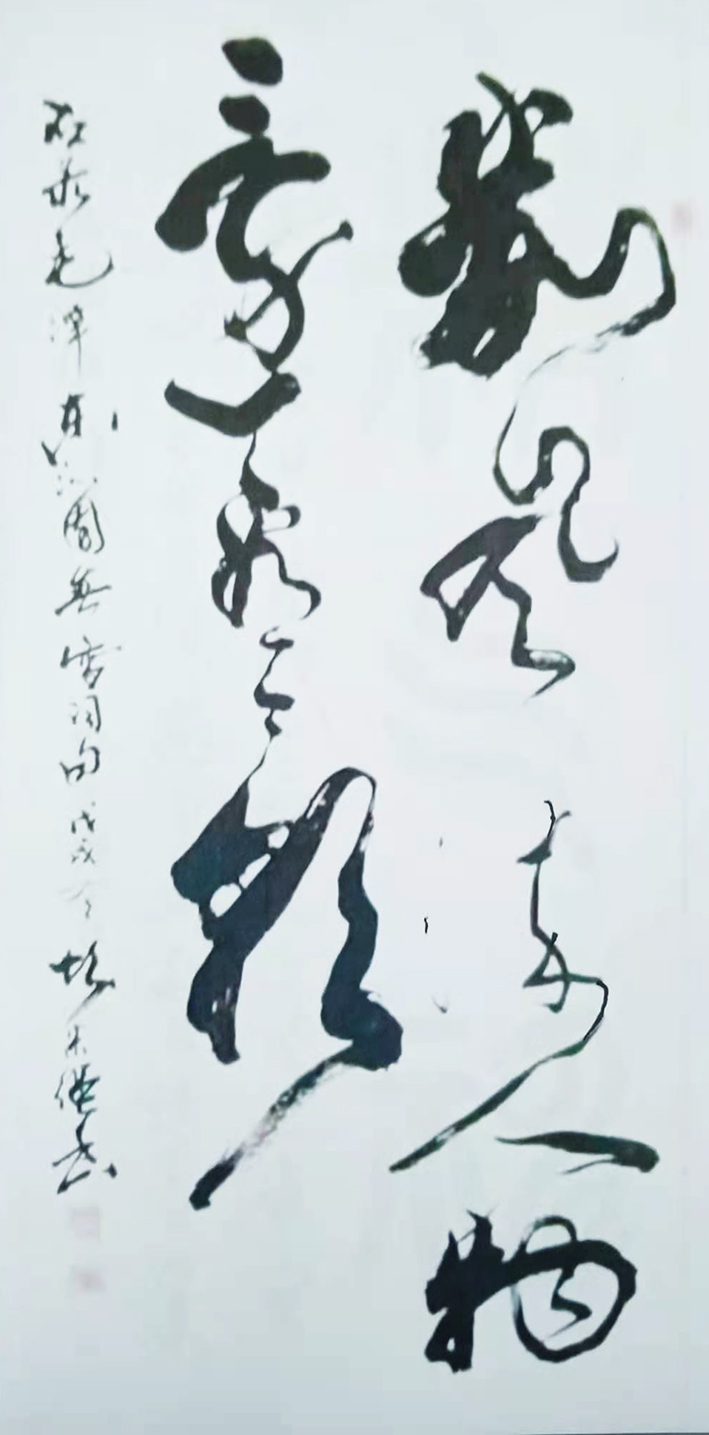 數風流人物
還看今朝
录毛泽东沁园春雪词句戊戌 书